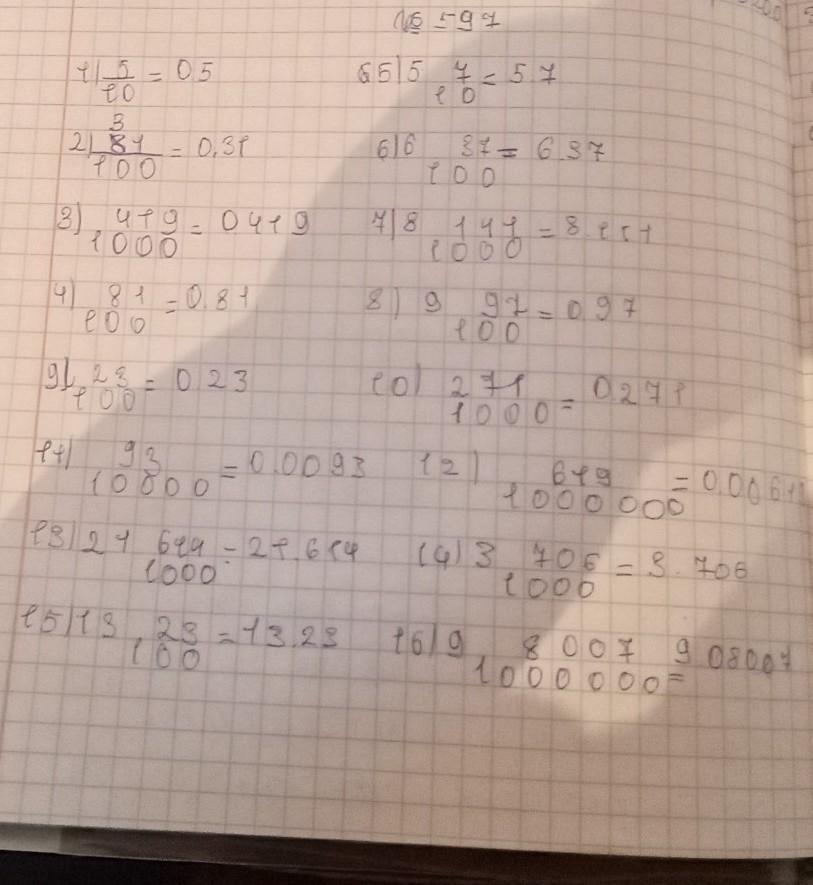 № 597
1) 5/10 = 0.5 5) 5 7/10 = 5.7
2) 31/100 = 0,31 6) 6 37/100 = 6.37
3) 419/1000 = 0.419 7) 8 1000 = 8.151
4) 81/100 = 0.81 8) 9 97/100 = 0.97
9) 23/100 = 0.23 10) 271/1000 = 0.271
11) 93/10000 = 0.0093 12) 619/1000000 = 0.00619
13) 21 614/1000 = 21.614 14) 3 706/1000 = 3.706
15) 13, 23/100 = 13.23 16) 9, 8007/1000000 = 9 08007